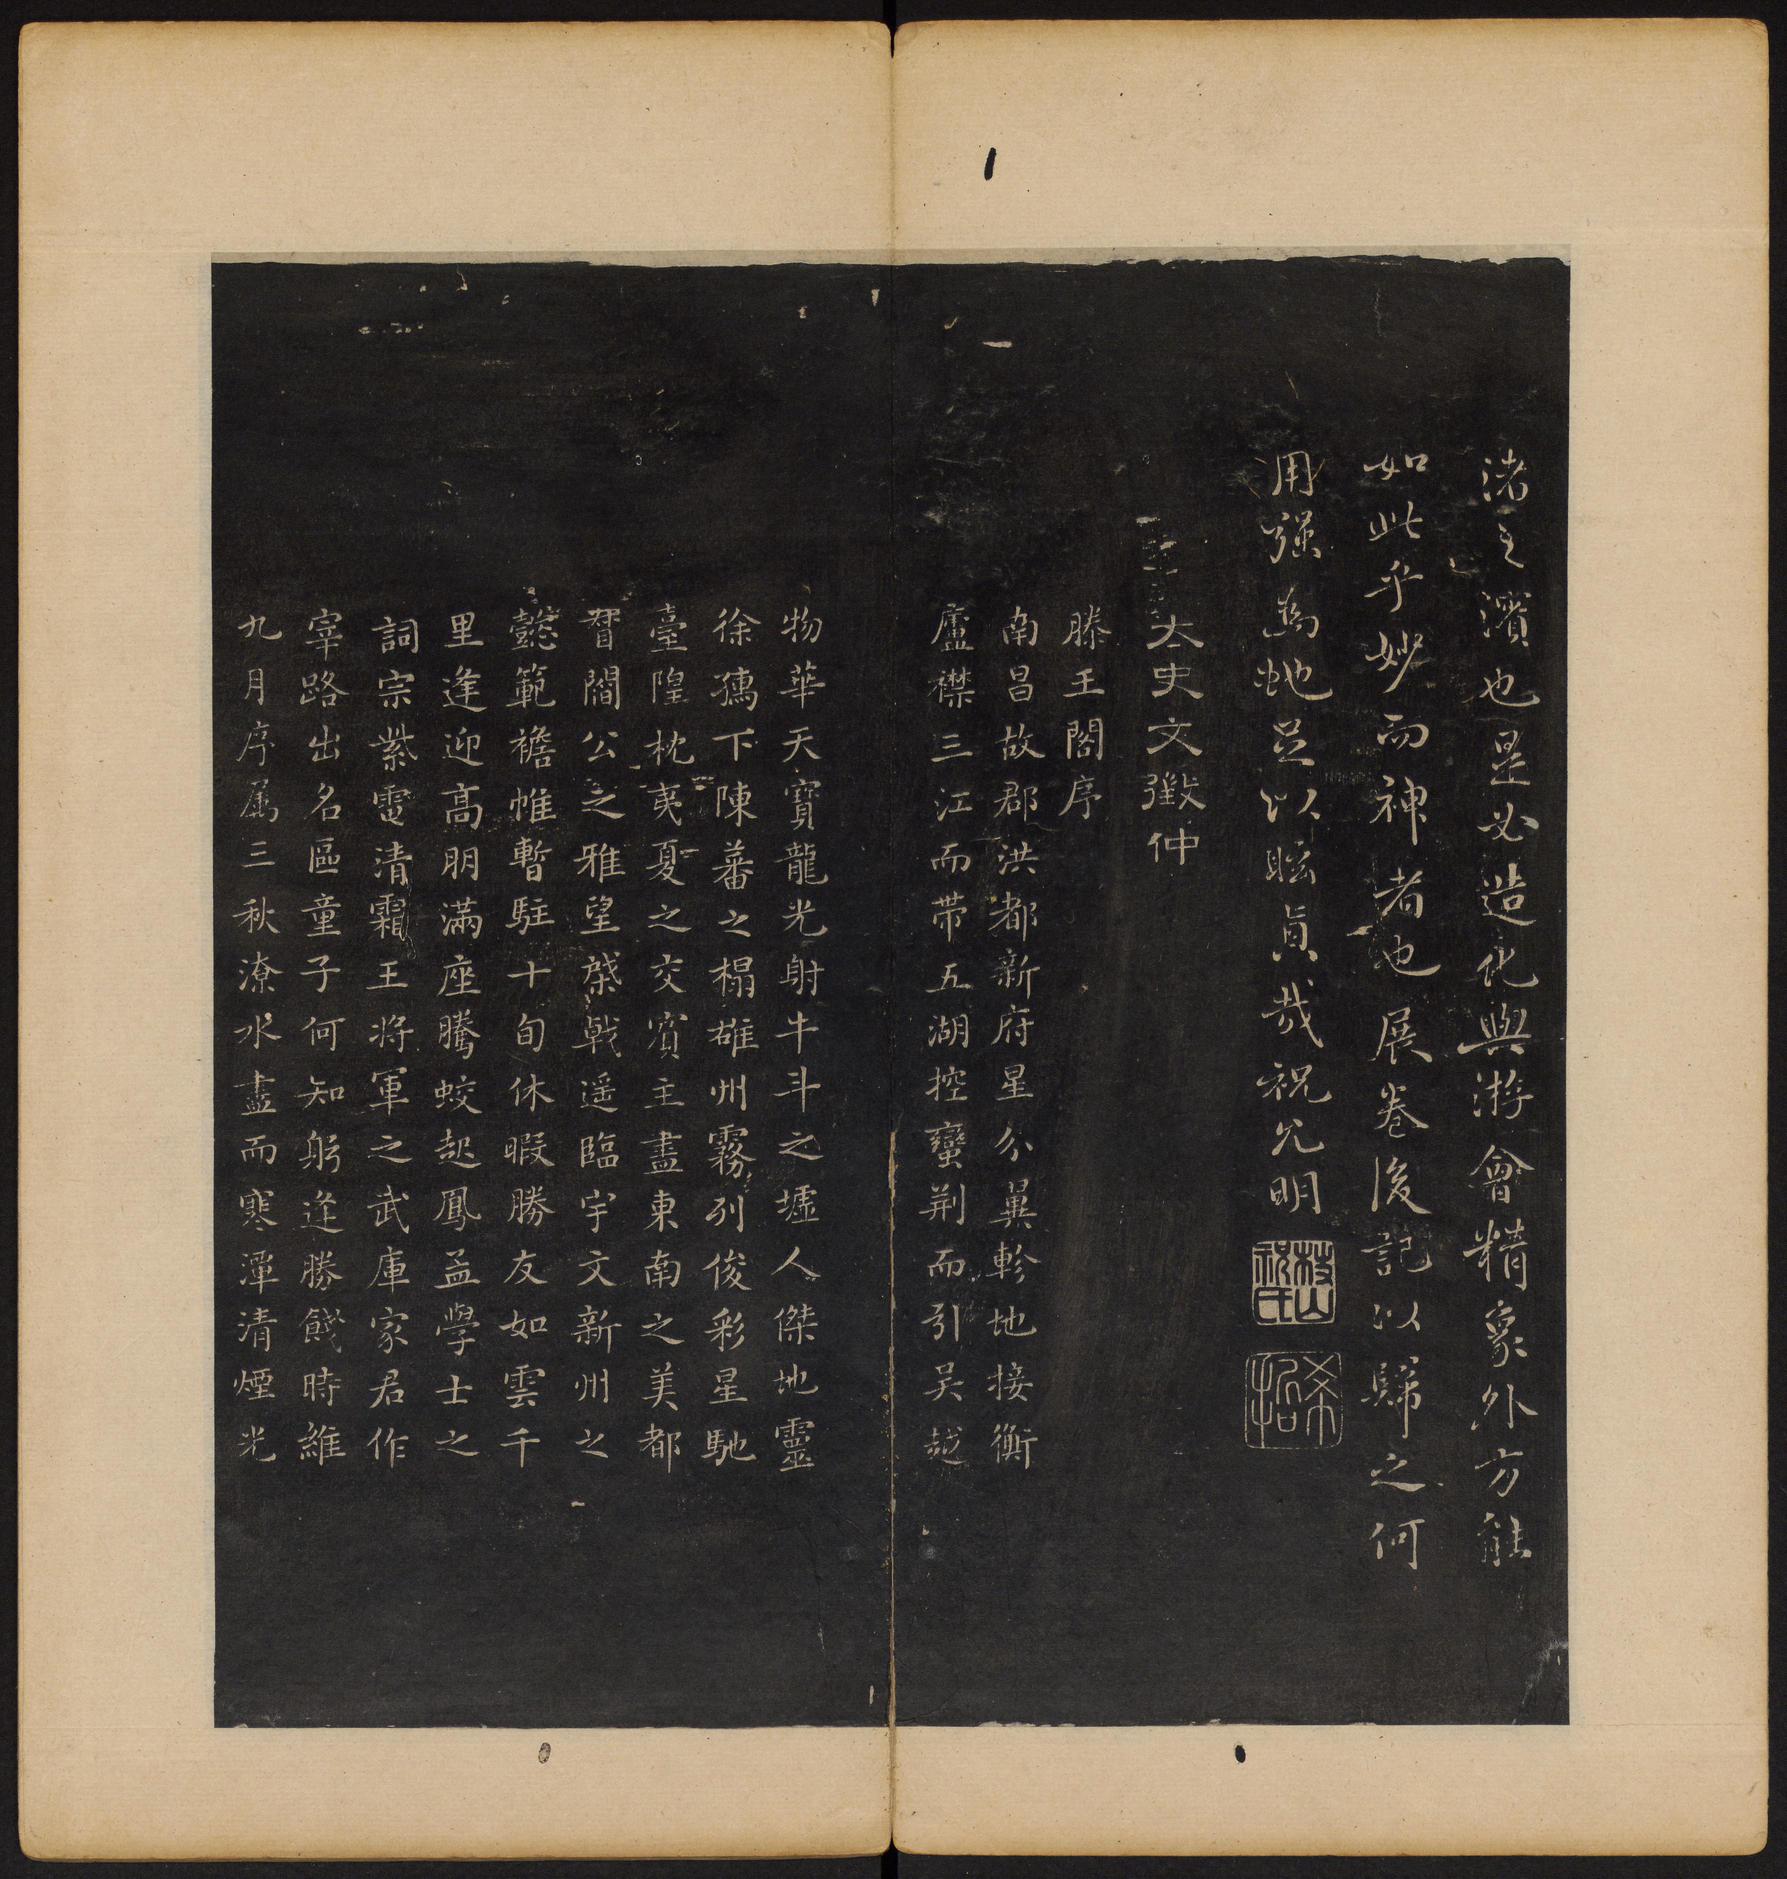 渚之濱也是必造化與游會精象外方能
如此乎妙而神者也展卷後記以歸之何
用强為虵足以眩真哉祝允明
枝山祝氏
希哲
太史文徵仲
滕王閣序
南昌故郡洪都新府星分翼軫地接衡
廬襟三江而帶五湖控蠻荆而引吴越
物華天寶龍光射牛斗之墟人傑地靈
徐孺下陳蕃之榻雄州霧列俊彩星馳
臺隍枕夷夏之交賓主盡東南之美都
督閻公之雅望棨戟遥臨宇文新州之
懿範襜帷暫駐十旬休暇勝友如雲千
里逢迎高朋滿座騰蛟起鳳孟學士之
詞宗紫電清霜王將軍之武庫家君作
宰路出名區童子何知躬逢勝餞時維
九月序属三秋潦水盡而寒潭清煙光